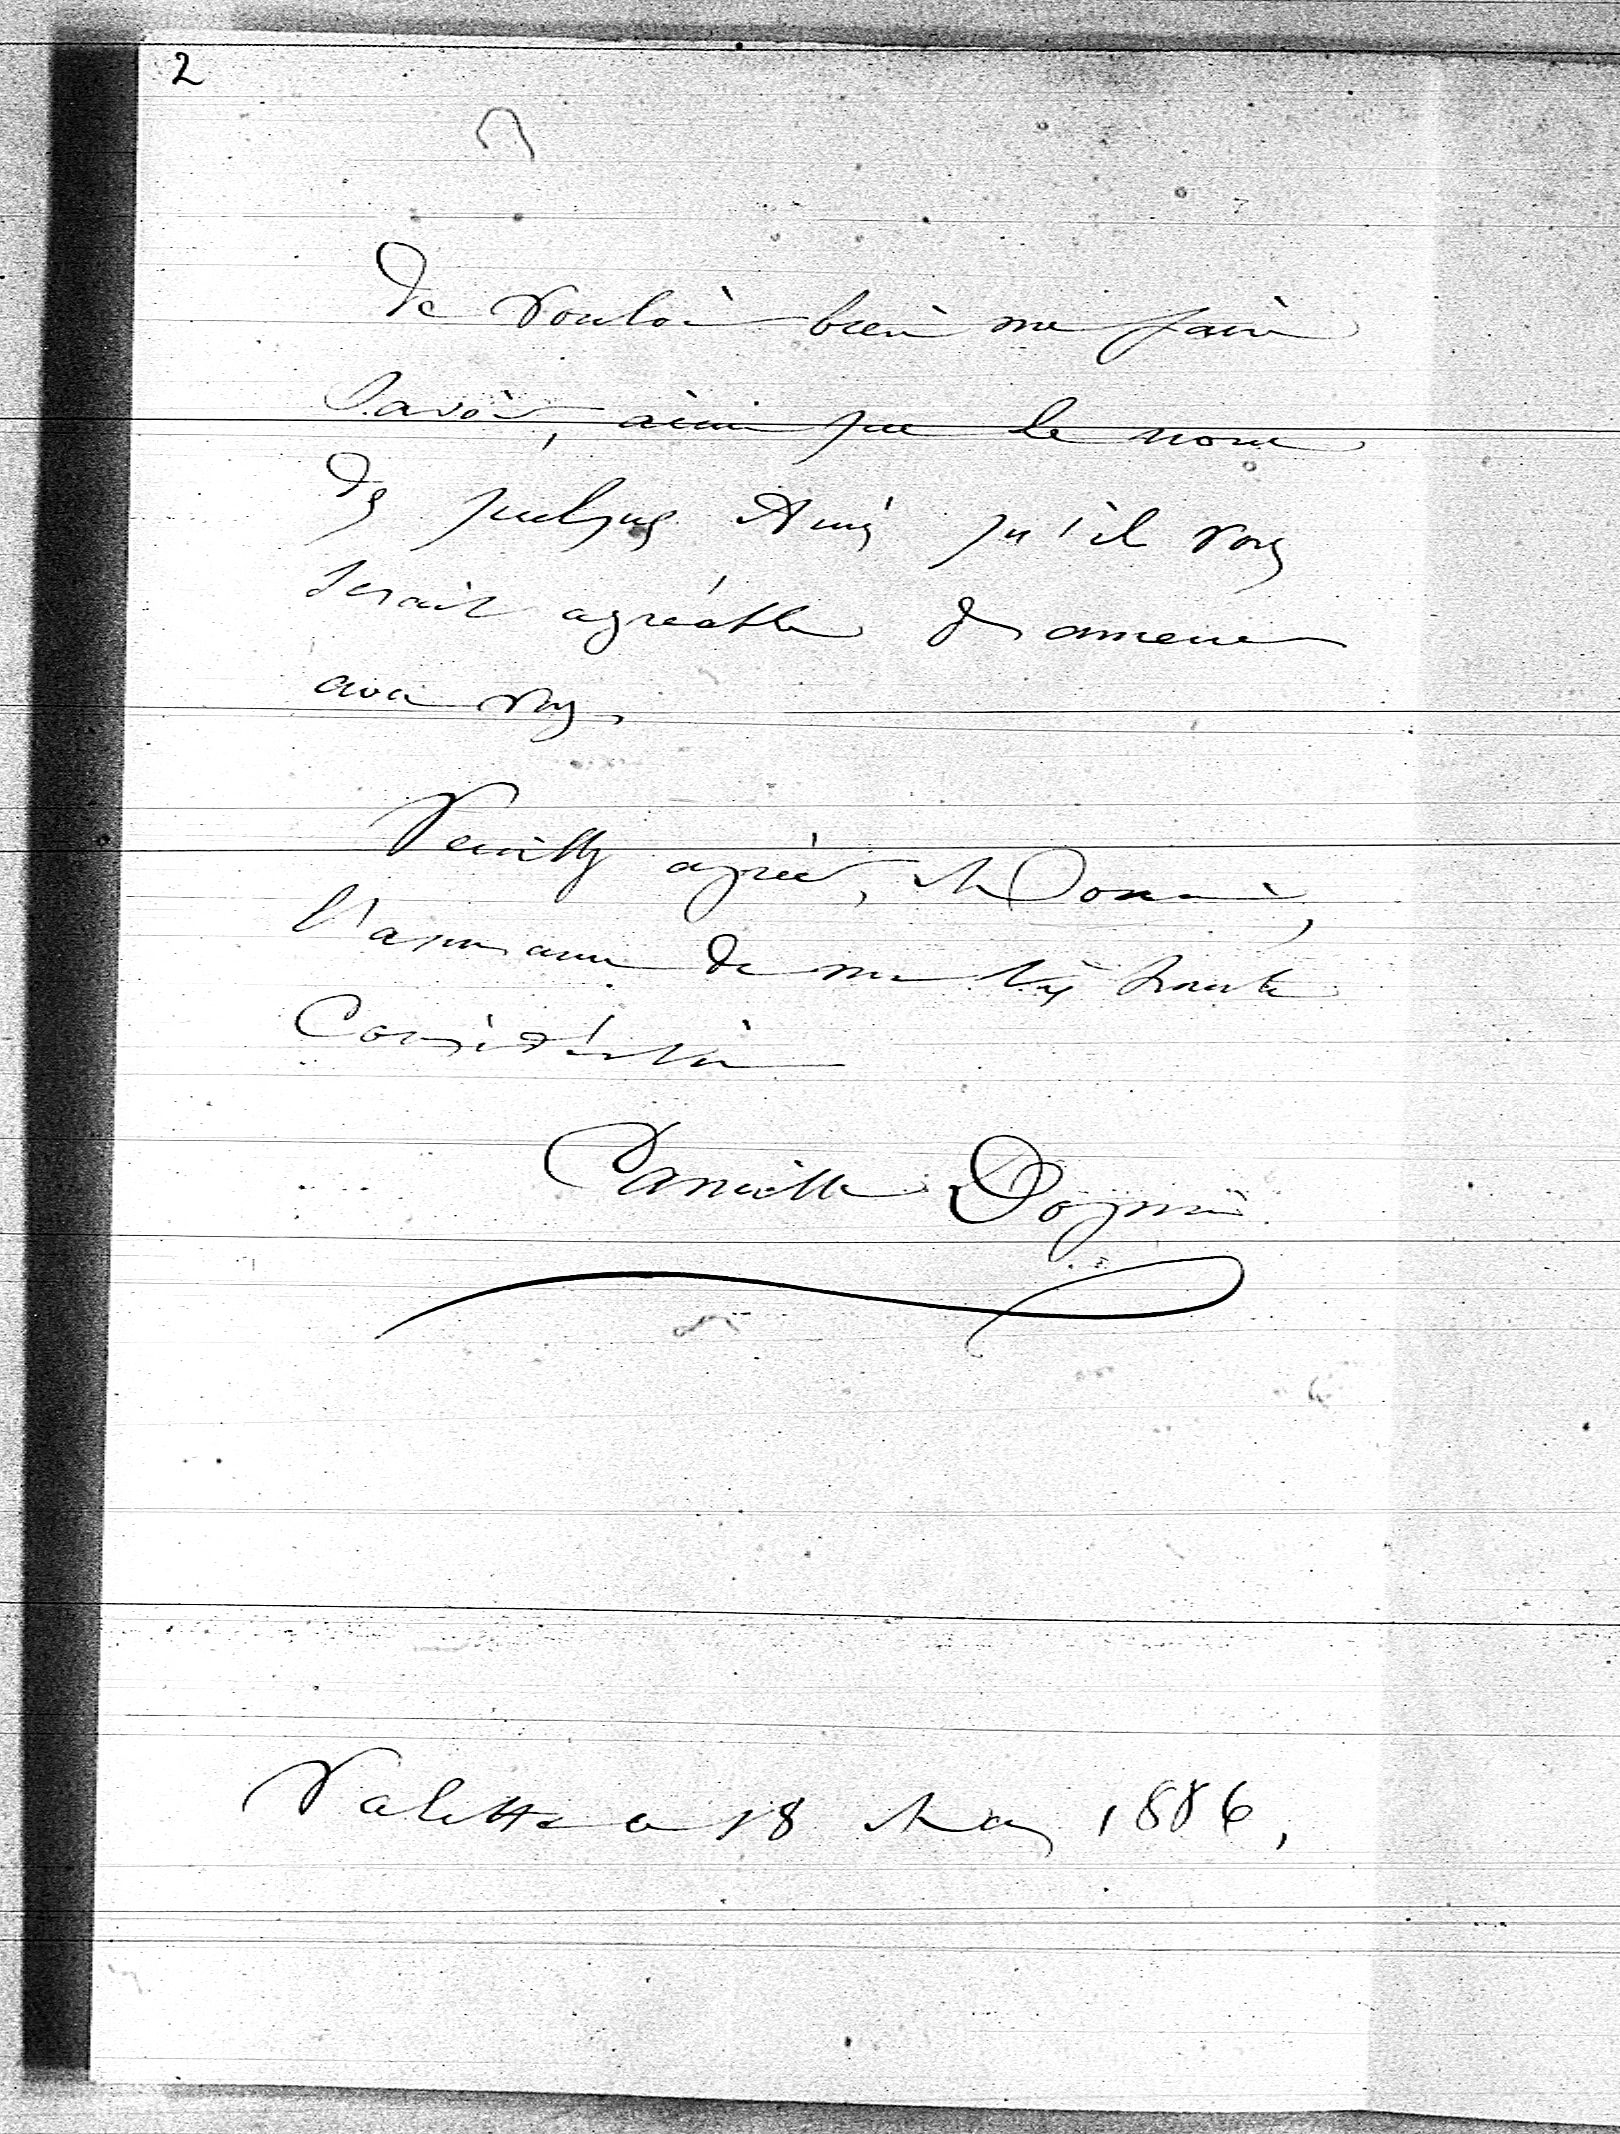 2
de vouloir bien me faire
savoir, ainsi que le nom
des quelques Amis qu'il vous
serait agréable d'amener
avec vous.
Veuillez agréer, Monsieur,
l'assurance de ma très haute
Considération
Camille Dognin
Valette ce 18 Mai 1886,